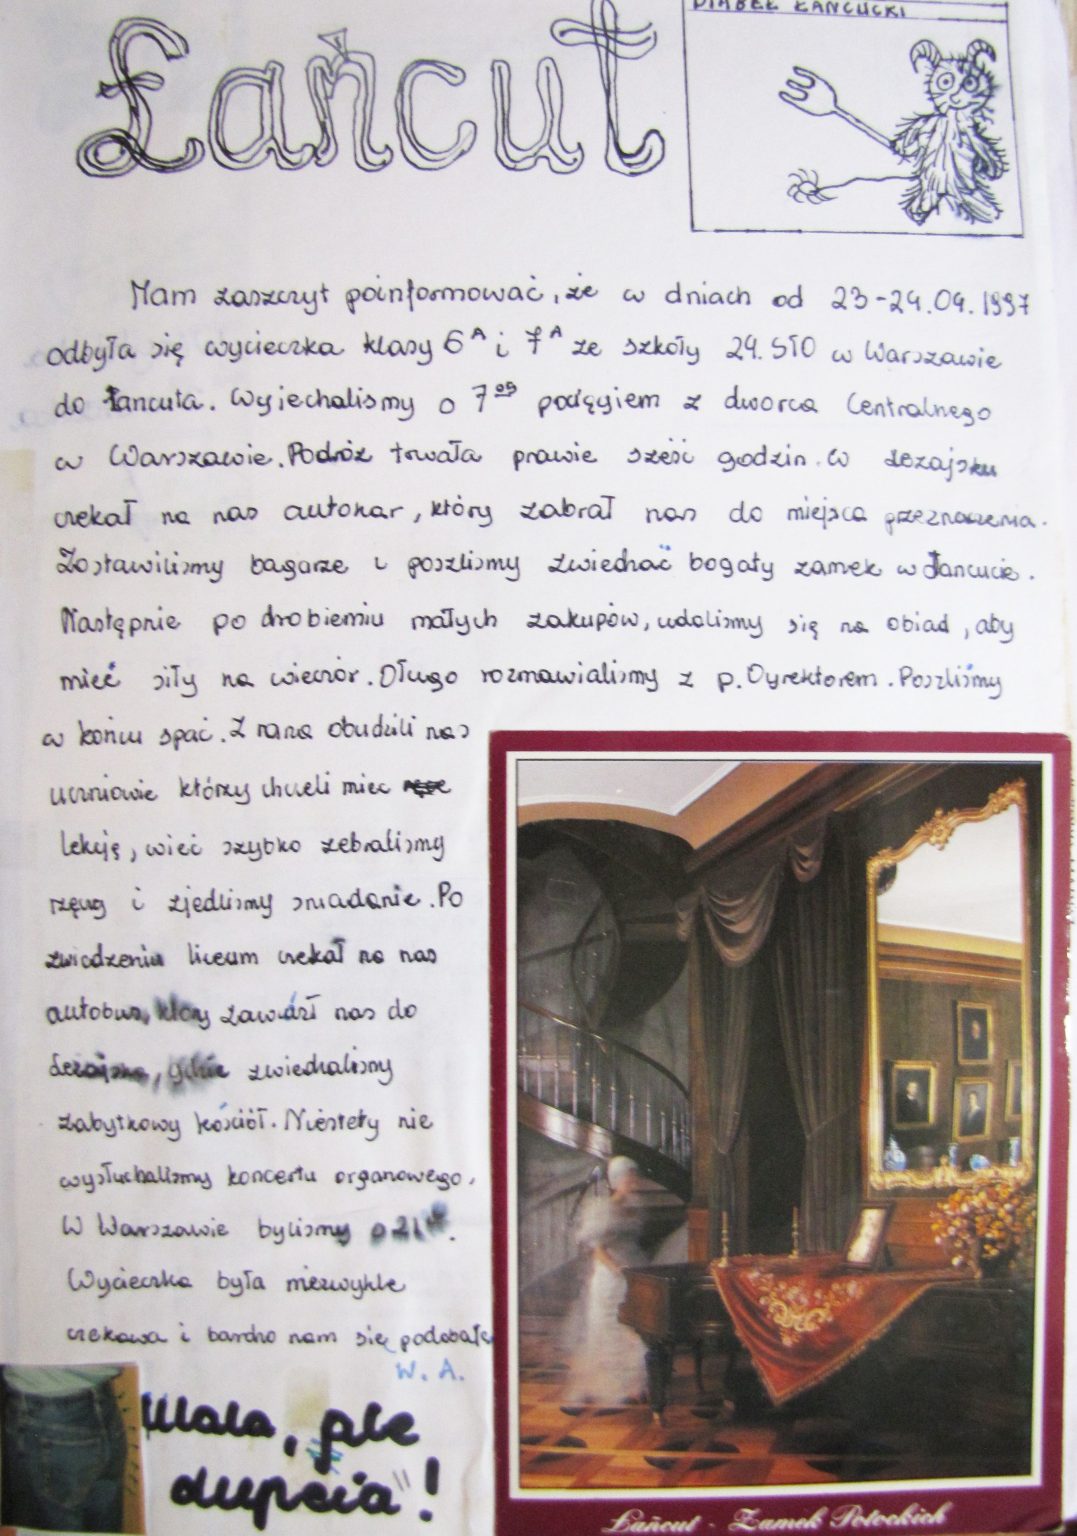 Łańcut
DIABEŁ ŁAŃCUCKI
Mam zaszczyt poinformować, że w dniach od 23-24.04.1997
odbyła się wycieczka klasy 6A i 7A ze szkoły 24. STO w Warszawie
do Łancuta. Wyjechalismy o 7 00 pociągiem z dworca Centralnego
w Warszawie. Podróż trwała prawie sześć godzin. W Leżajsku
czekał na nas autokar, który zabrał nas do miejsca przeznaczenia.
Zostawilismy bagarze i poszlismy zwiedzać bogaty zamek w Łancucie.
Następnie po drobieniu małych zakupów, udalismy się na obiad, aby
mieć siły na wieczór. Długo rozmawialismy z p. Dyrektorem. Poszliśmy
w końcu spać. Z rana obudzili nas
uczniowie którzy chcieli miec
lekcję, wieć szybko zebralismy
rzęczy i zjedlismy sniadanie. Po
zwiedzeniu liceum czekał na nas
autobus, ktory zawiózł nas do
Leżajska, gdzie zwiedzalismy
zabytkowy kościół. Niestety nie
wysłuchalismy koncertu organowego.
W Warszawie bylismy o 21
Wycieczka była niezwykle
ciekawa i bardzo nam się podobała
W. A.
Mała, ale
dupcia"!
Łańcut - Zamek Potockich